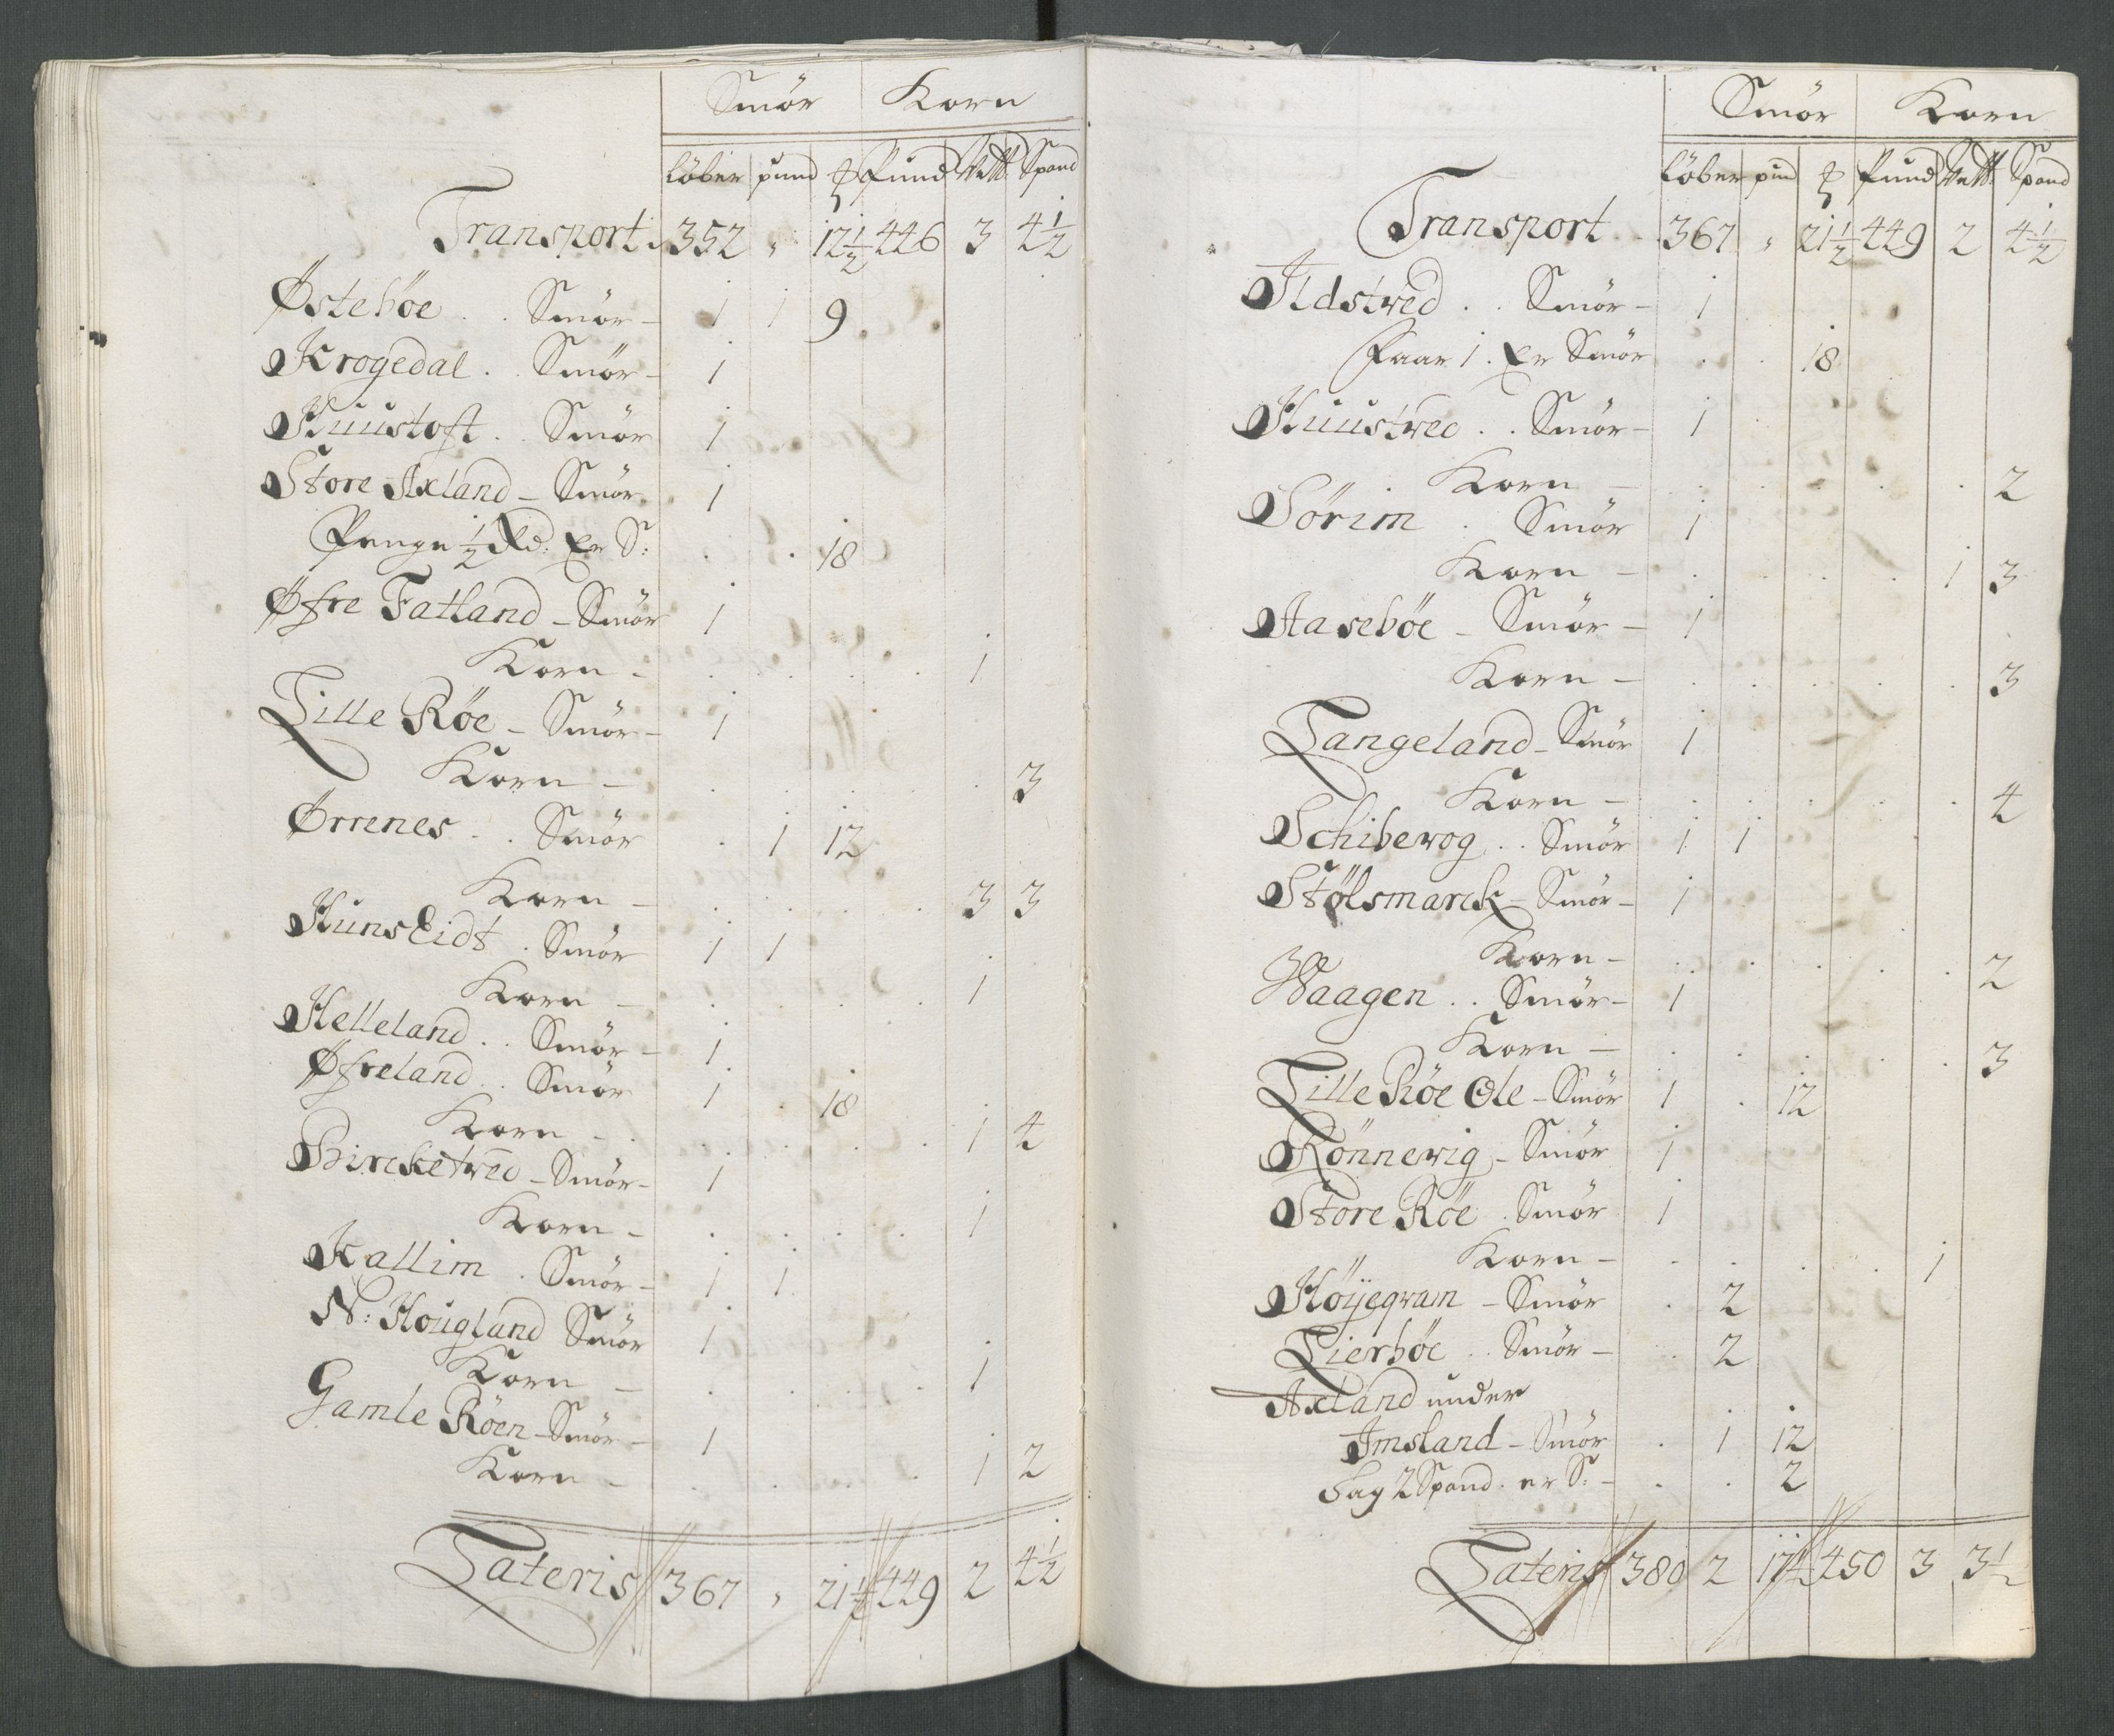 Smör Korn
Löber pund ℔ Pund Vett: Spand
Transport. 352 " 12½ 446 3 4½
Østeböe . . Smör – 1 1 9
Krogedal . . Smör – 1
Huustoft . . Smör 1
Store Axland – Smör 1
Penge ½ Rd: Er S: . . 18
Øfre Fatland – Smör 1
Korn – . . . . . 1
Lille Röe – Smör – 1
Korn – . . . . . . 3
Ørrenes . . Smör . 1 12
Korn – . . . . . 3 3
Hunseidt . Smör 1 1
Korn – . . . . 1
Helleland . . Smör – 1
Øfreland . . Smör 1 . 18
Korn – . . . . . 1 4
Bircketved – Smör – 1
Korn – . . . . . 1
Kallim . Smör – 1 1
N: Hougland Smör 1
Korn – . . . . . 1
Gamle Röen – Smör – 1
Korn – . . . . 1 2
Lateris 367 " 21½ 449 2 4½
Smör Korn
Löber pund ℔ Pund Vett: Spand
Transport . . 367 " 21½ 449 2 4½
Ildstved . . Smör – 1
Faar 1 . Er Smör . . 18
Huustved . . Smör – 1
Korn – . . . . . 2
Sörim . Smör 1
Korn – . . . . 1 3
Aaseböe – Smör – 1
Korn – . . . . . 3
Tangeland – Smör 1
Korn – . . . . . 4
Schibevog . . Smör 1 1
Stölsmarck – Smör – 1
Korn – . . . . . 2
Waagen . . Smör – 1
Korn – . . . . . 3
Lille Röe Ole – Smör 1 . 12
Rönnevig – Smör 1
Store Röe . Smör 1
Korn – . . . . . 1
Höÿegvam – Smör . 2
Lierböe . . Smör – . 2
Axland under
Imsland – Smör . 1 12
Sag 2 Spand . er S: – . . 2
Lateris 380 2 17½ 450 3 3½